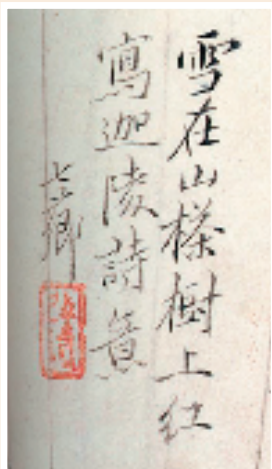 雪在山樣樹上红
寫迦陵詩意
七薌